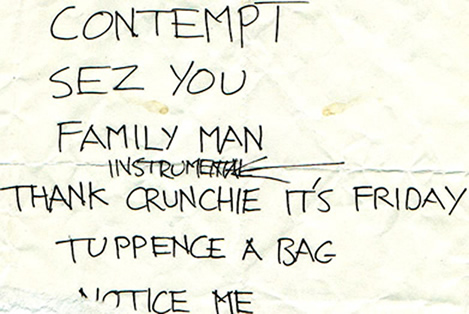 CONTEMPT
SEZ YOU
FAMILY MAN
INSTRUMENTAL
THANK CRUNCHIE IT'S FRIDAY
TUPPENCE A BAG
NOTICE ME